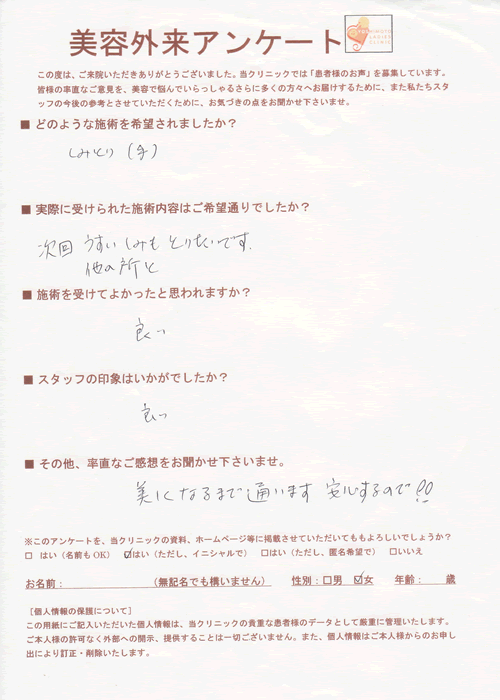 美容外来アンケート
この度は、ご来院いただきありがとうございました。当クリニックでは「患者様のお声」を募集しています。
皆様の率直なご意見を、美容で悩んでいらっしゃるさらに多くの方々へお届けするために、また私たちスタ
ッフの今後の参考とさせていただくために、お気づきの点をお聞かせ下さいませ。
■ どのような施術を希望されましたか？
しみとり（手）
■ 実際に受けられた施術内容はご希望通りでしたか？
次回 うすいしみも とりたいです。
他の所と
■ 施術を受けてよかったと思われますか？
良い
■ スタッフの印象はいかがでしたか？
良い
■ その他、率直なご感想をお聞かせ下さいませ。
美になるまで通います 安心するので!!
※このアンケートを、当クリニックの資料、ホームページ等に掲載させていただいてももよろしいでしょうか？
□ はい（名前もOK） ☑はい（ただし、イニシャルで） □はい（ただし、匿名希望で） □いいえ
お名前： （無記名でも構いません） 性別：□男 ☑女 年齢： 歳
［個人情報の保護について］
この用紙にご記入いただいた個人情報は、当クリニックの貴重な患者様のデータとして厳重に管理いたします。
ご本人様の許可なく外部への開示、提供することは一切ございません。また、個人情報はご本人様からのお申し
出により訂正・削除いたします。